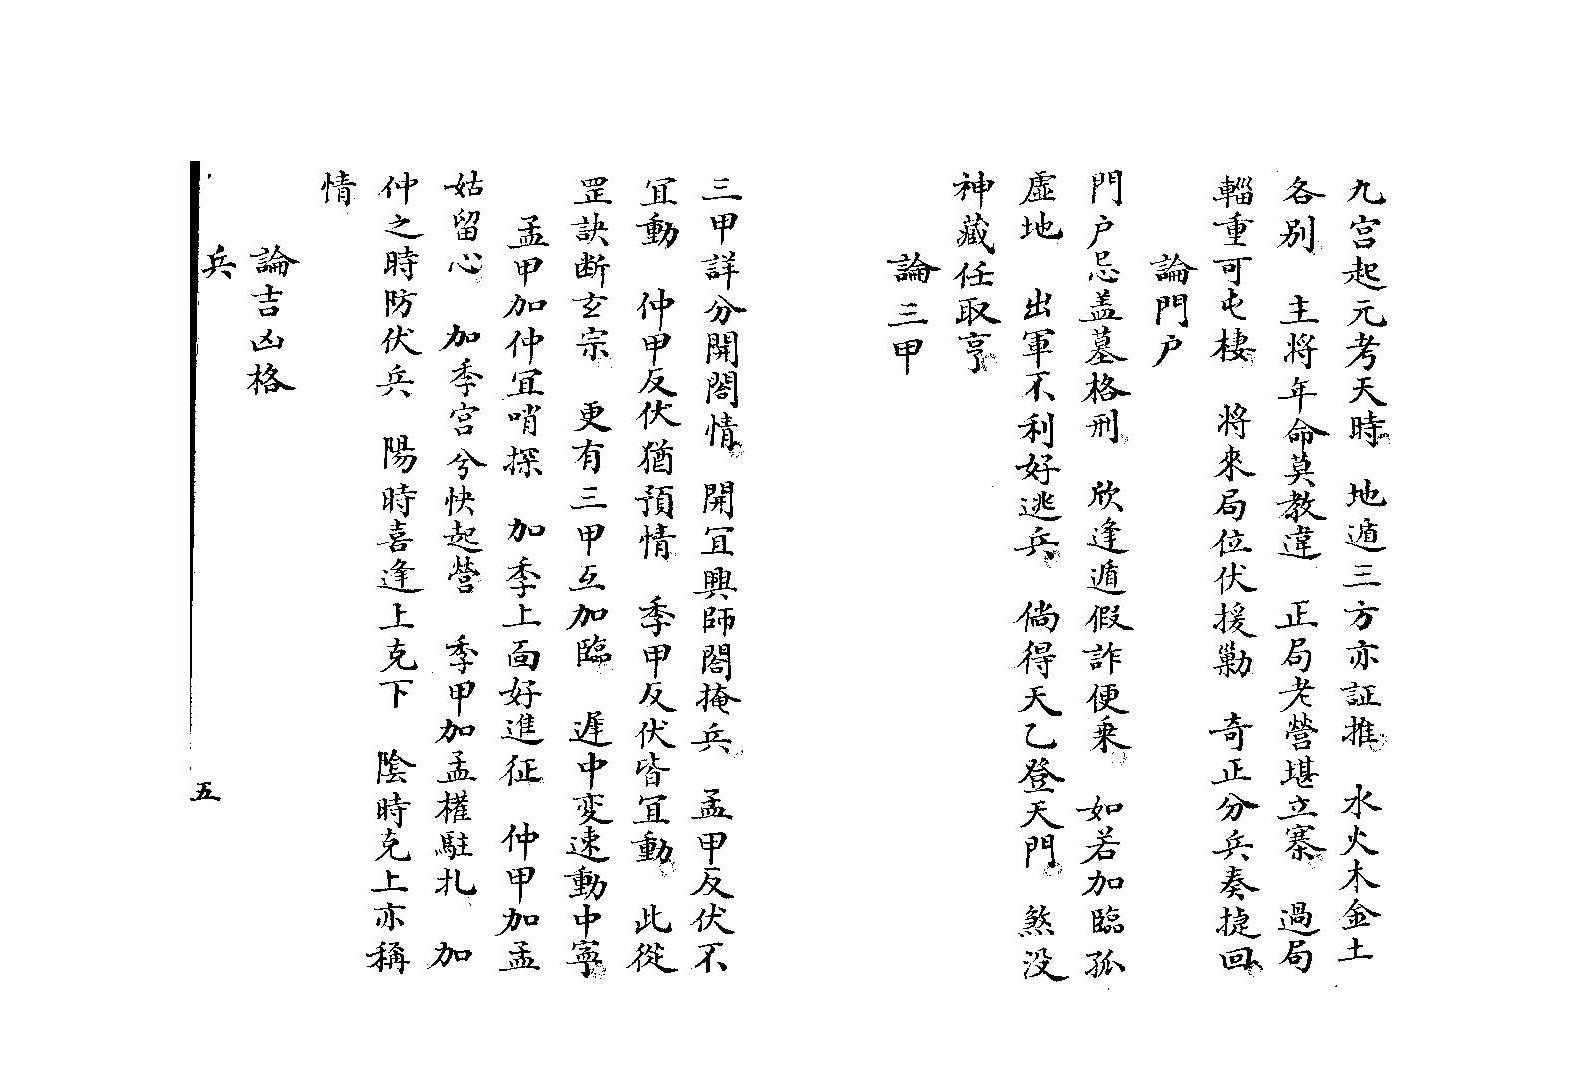 九宮起元考天時　地遁三方亦証推　水火木金土
各别　主將年命莫教違　正局老營堪立寨　過局
輜重可屯棲　將來局位伏援勦　奇正分兵奏捷回
論門户
門户忌盖墓格刑　欣逢遁假詐便乗　如若加臨孤
虛地　出軍不利好逃兵　倘得天乙登天門　煞没
神藏任取亨
論三甲
三甲詳分開閤情　開冝興師閤掩兵　孟甲反伏不
冝動　仲甲反伏猶預情　季甲反伏皆冝動　此從
罡訣断玄宗　更有三甲互加臨　遅中変速動中寧
孟甲加仲冝哨探　加季上面好進征　仲甲加孟
姑留心　加季宮兮快起營　季甲加孟權駐札　加
仲之時防伏兵　陽時喜逢上克下　陰時克上亦稱
情
論吉凶格
兵
五